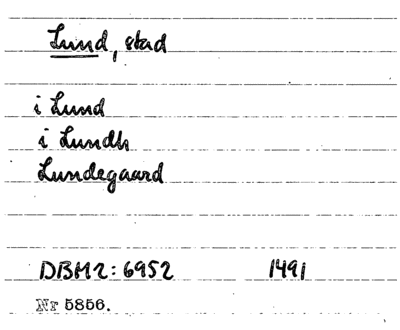 Lund, stad
i Lund
i Lundh
Lundegaard
DBM2:6952 1491
Nr 5856.